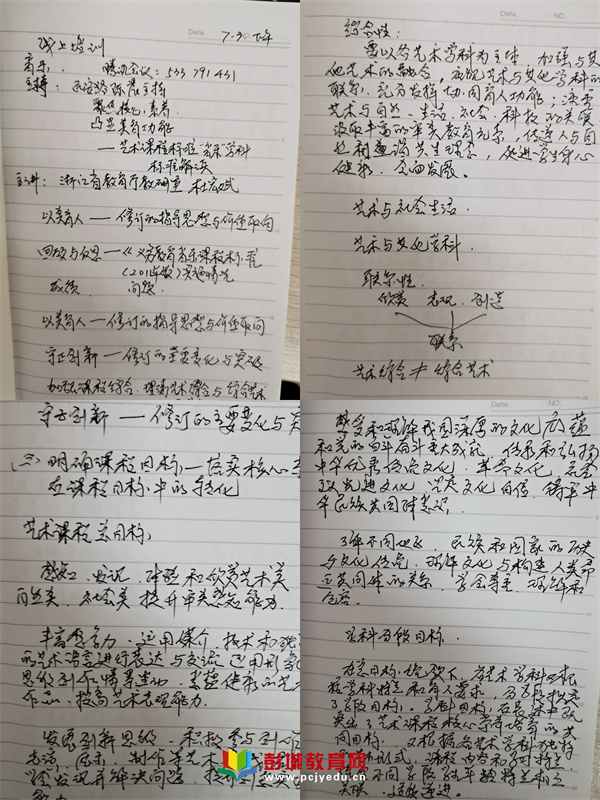 Date.
7-30 下午
线上培训
音乐. 腾讯会议: 533 791 431
主持: 陈
聚焦核心素养
凸显美育功能
——艺术课程标准"音乐"学科
标准解读
主讲: 浙江省教育厅教研室 杜宏斌
以美育人——修订的指导思想与价值取向
回顾与反思——《义务教育音乐课程标准
(2011年版)》实施情况
成绩 问题
以美育人——修订的指导思想与价值取向
守正创新——修订的主要变化与突破
加强课程综合, 理清艺术综合与综合艺术
Date. NO.
综合性:
要以各艺术学科为主体, 加强与其
他艺术的融合, 重视艺术与其他学科的
联系, 充分发挥协同育人功能; 注重
艺术与自然、生活、社会、科技的关联
汲取丰富的审美教育元素, 传递人与自
然和谐共生理念, 促进学生身心
健康, 全面发展.
艺术与社会生活.
艺术与其他学科.
联系性.
欣赏 表现. 创造
联系
艺术综合 ≠ 综合艺术
守正创新——修订的主要变化与突
(二) 明确课程目标, —落实核心素
在课程目标中的转化
艺术课程总目标:
感知、发现、体验和欣赏艺术美
自然美、社会美 提升审美感知能力.
丰富想象力, 运用媒介、技术和独
的艺术语言进行表达与交流 运用形象
思维创作情景生动、意蕴健康的艺
作品, 提高艺术表现能力.
发展创新思维, 积极参与创作
表演、展示、制作等艺术
学会发现并解决问题, 提升创意实
能力.
Date. NO.
感受和理解我国深厚的文化底蕴
和党的百年奋斗重大成就, 传承和弘扬
中华优秀传统文化、革命文化、社会
主义先进文化 坚定文化自信, 铸牢中
华民族共同体意识.
了解不同地区、民族和国家的历史
与文化传统, 理解文化与构建人类命
运共同体的关系, 学会尊重、理解和
包容.
学科分段目标.
在总目标的 下, 各艺术学科根
据学科特点和育人要求, 分学段提出
了学段目标. 学科目标, 在
突出了艺术课程核心素养培育的共
同目标, 又根据各艺术学科独特
课程内容和
不同学段 年龄特点和
递进.
彭城教育网
www.pcjyedu.cn